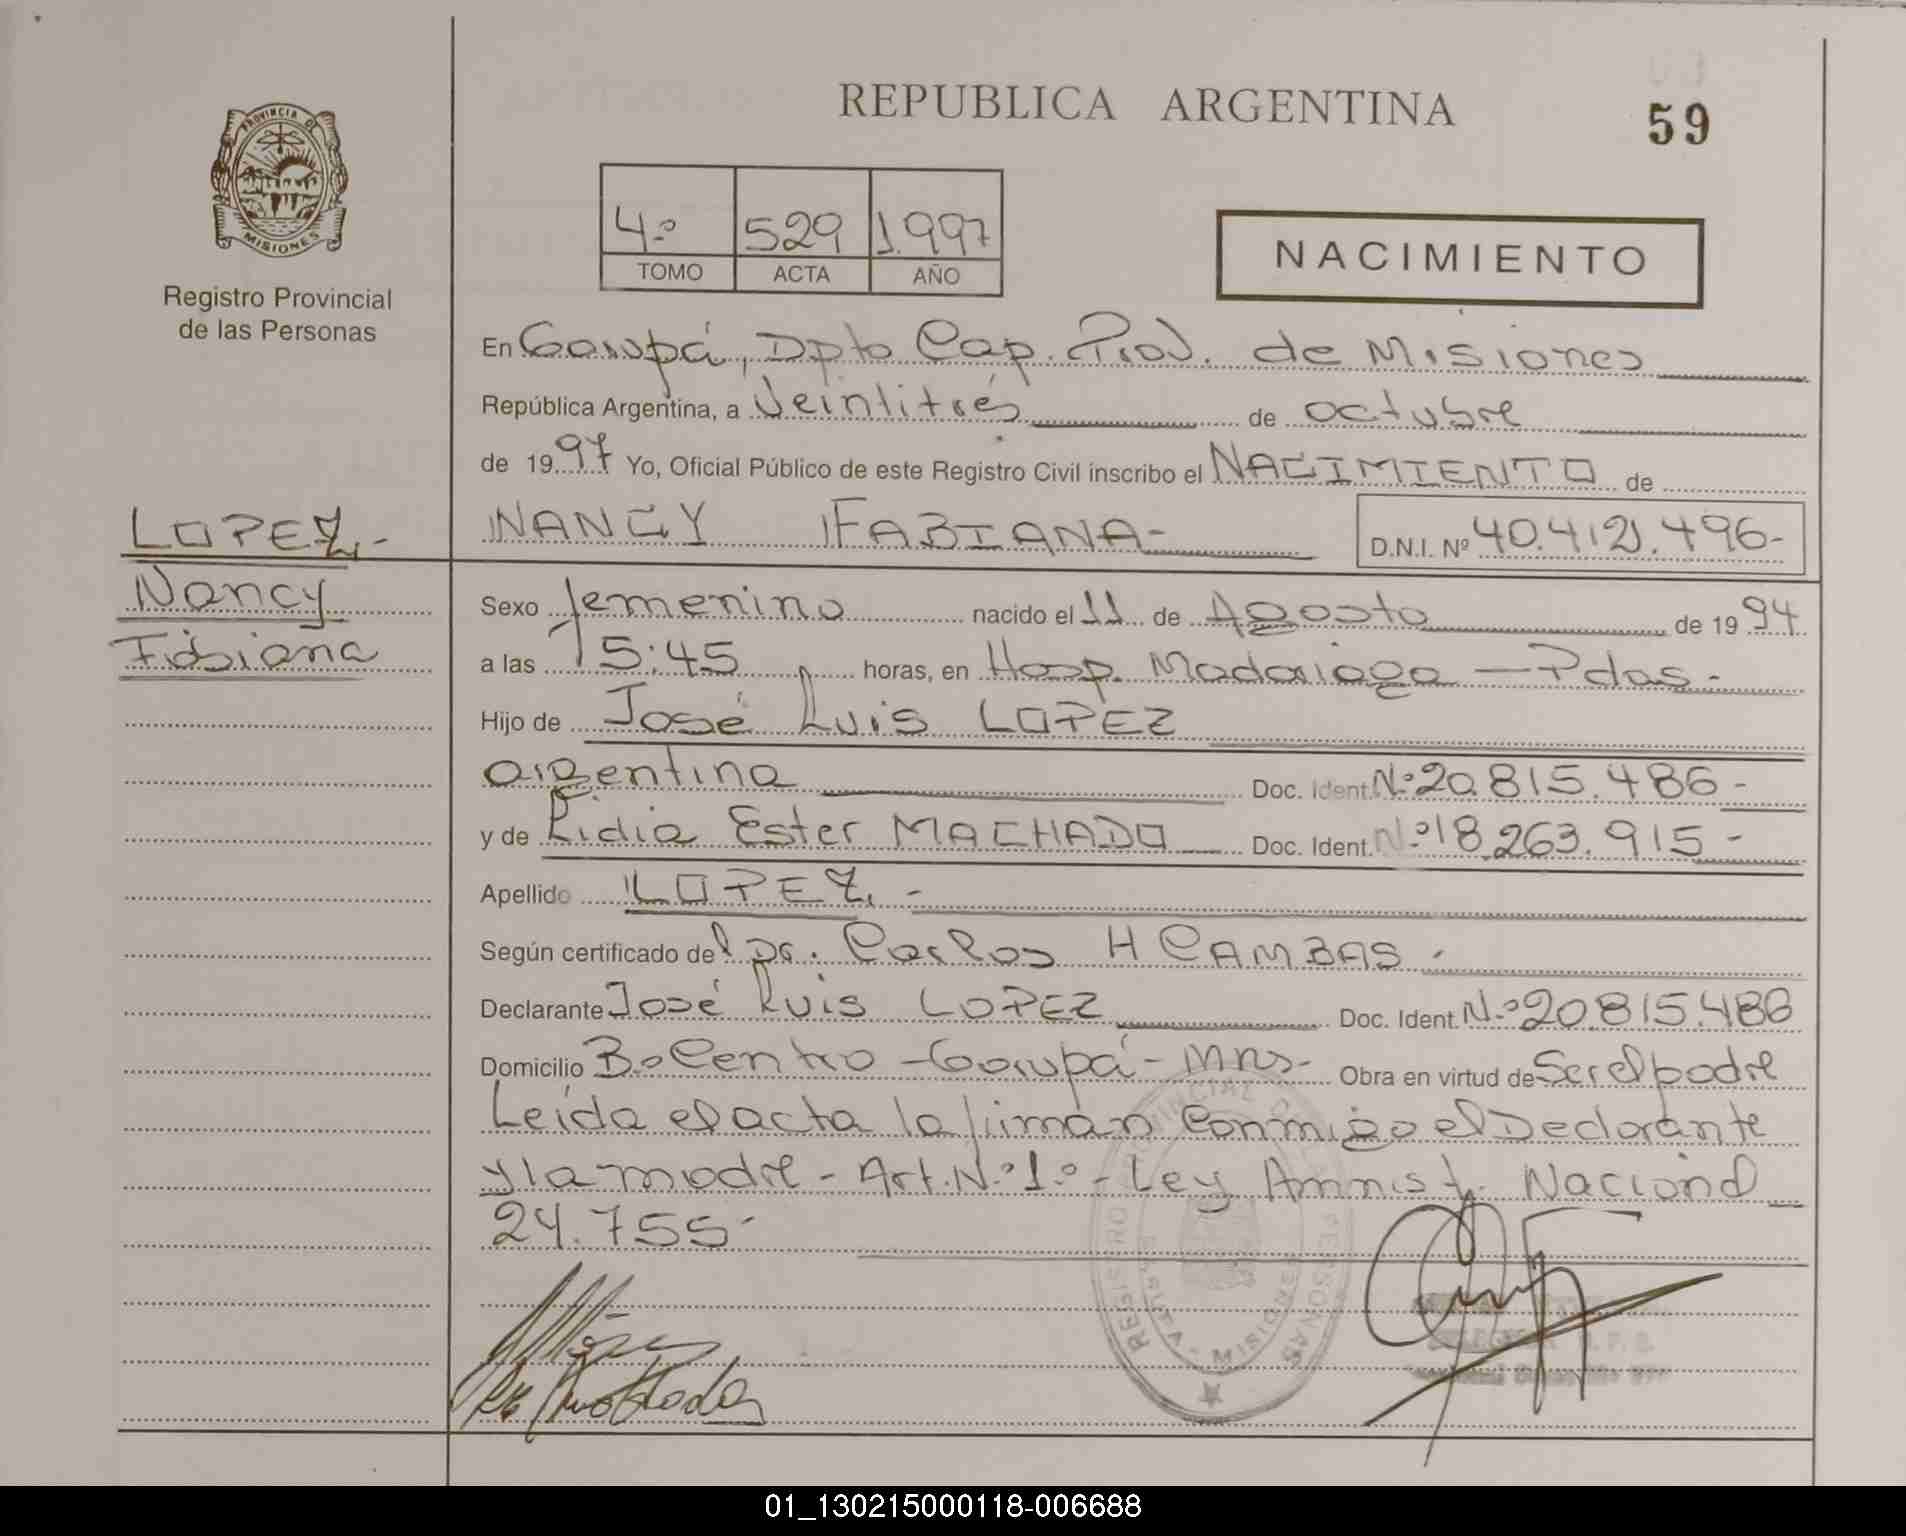 REPUBLICA ARGENTINA
59
PROVINCIA DE
MISIONES
Registro Provincial
de las Personas
4º 529 1.997
TOMO ACTA AÑO
NACIMIENTO
En Garupá, Dpto Cap. Prov. de Misiones
República Argentina, a Veintitrés de octubre
de 1997 Yo, Oficial Público de este Registro Civil inscribo el NACIMIENTO de
LOPEZ.-
NANCY FABIANA- D.N.I. Nº 40.412.496-
Nancy
Fabiana
Sexo femenino nacido el 11 de Agosto de 1994
a las 15:45 horas, en Hosp. Madariaga - Pdas.-
Hijo de José Luis LOPEZ
argentina Doc. Ident. Nº 20.815.486-
y de Lidia Ester MACHADO Doc. Ident. Nº 18.263.915-
Apellido LOPEZ.-
Según certificado del Dr. Carlos H CAMBAS-
Declarante José Luis LOPEZ Doc. Ident. Nº 20.815.486
Domicilio Bº Centro - Garupá - Mns- Obra en virtud de Ser el padre
Leída el acta la firman conmigo el Declarante
y la madre - Art. Nº 1º - Ley Amnist. Nacional
24.755-
REGISTRO PROVINCIAL DE LAS PERSONAS
MISIONES
01_130215000118-006688